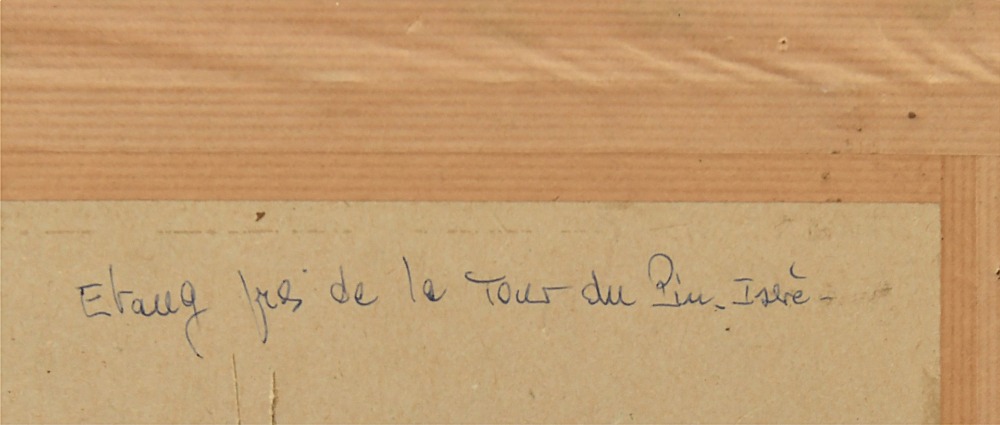 Etang près de la Tour du Pin. Isère -